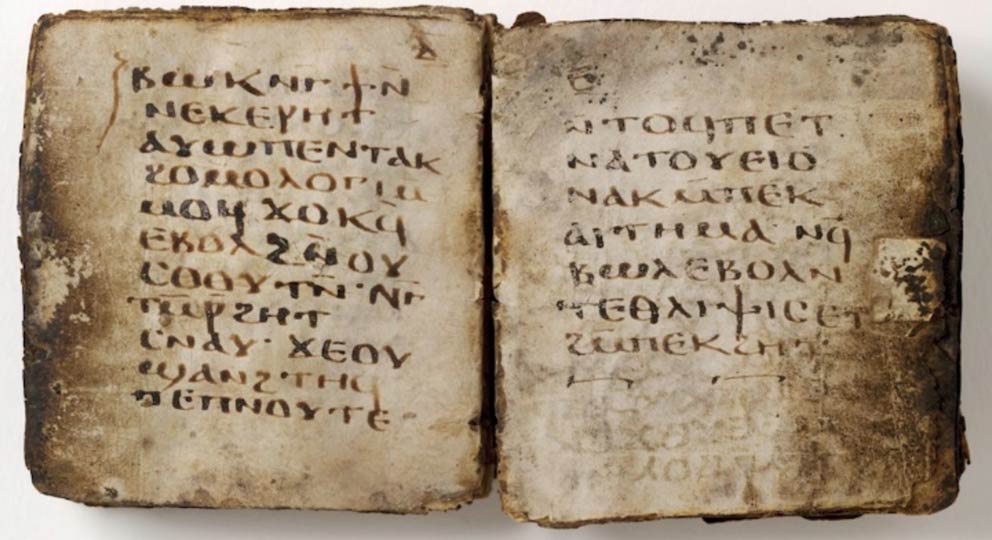 ⲇ̄
ⲃⲱⲕ ⲛⲅ ϯⲛ̄
ⲛⲉⲕⲉⲣⲏⲧ
ⲁⲩⲱ ⲡⲉⲛⲧⲁⲕ
ϩⲟⲙⲟⲗⲟⲅⲓ ⲙ̄
ⲙⲟϥ ϫⲟⲕϥ̄
ⲉⲃⲟⲗ ϩⲛ̄ ⲟⲩ
ⲥⲟⲟⲩⲧⲛ̄· ⲛⲅ
ⲧⲙ̄ⲣ̄ϩⲏⲧ
ⲥⲛⲁⲩ· ϫⲉ ⲟⲩ
ϣⲁⲛϩⲧⲏϥ
ⲡⲉ ⲡⲛⲟⲩⲧⲉ·
ⲉ̄
ⲛⲧⲟϥ ⲡⲉⲧ
ⲛⲁⲧⲟⲩⲉⲓⲟ
ⲛⲁⲕ ⲙ̄ⲡⲉⲕ
ⲁⲓⲧⲏⲙⲁ· ⲛϥ̄
ⲃⲱⲗ ⲉⲃⲟⲗ ⲛ
ⲧⲉⲑⲗⲓⲯⲓⲥ ⲉⲧ
ϩⲙ̄ⲡⲉⲕϩⲏⲧ·